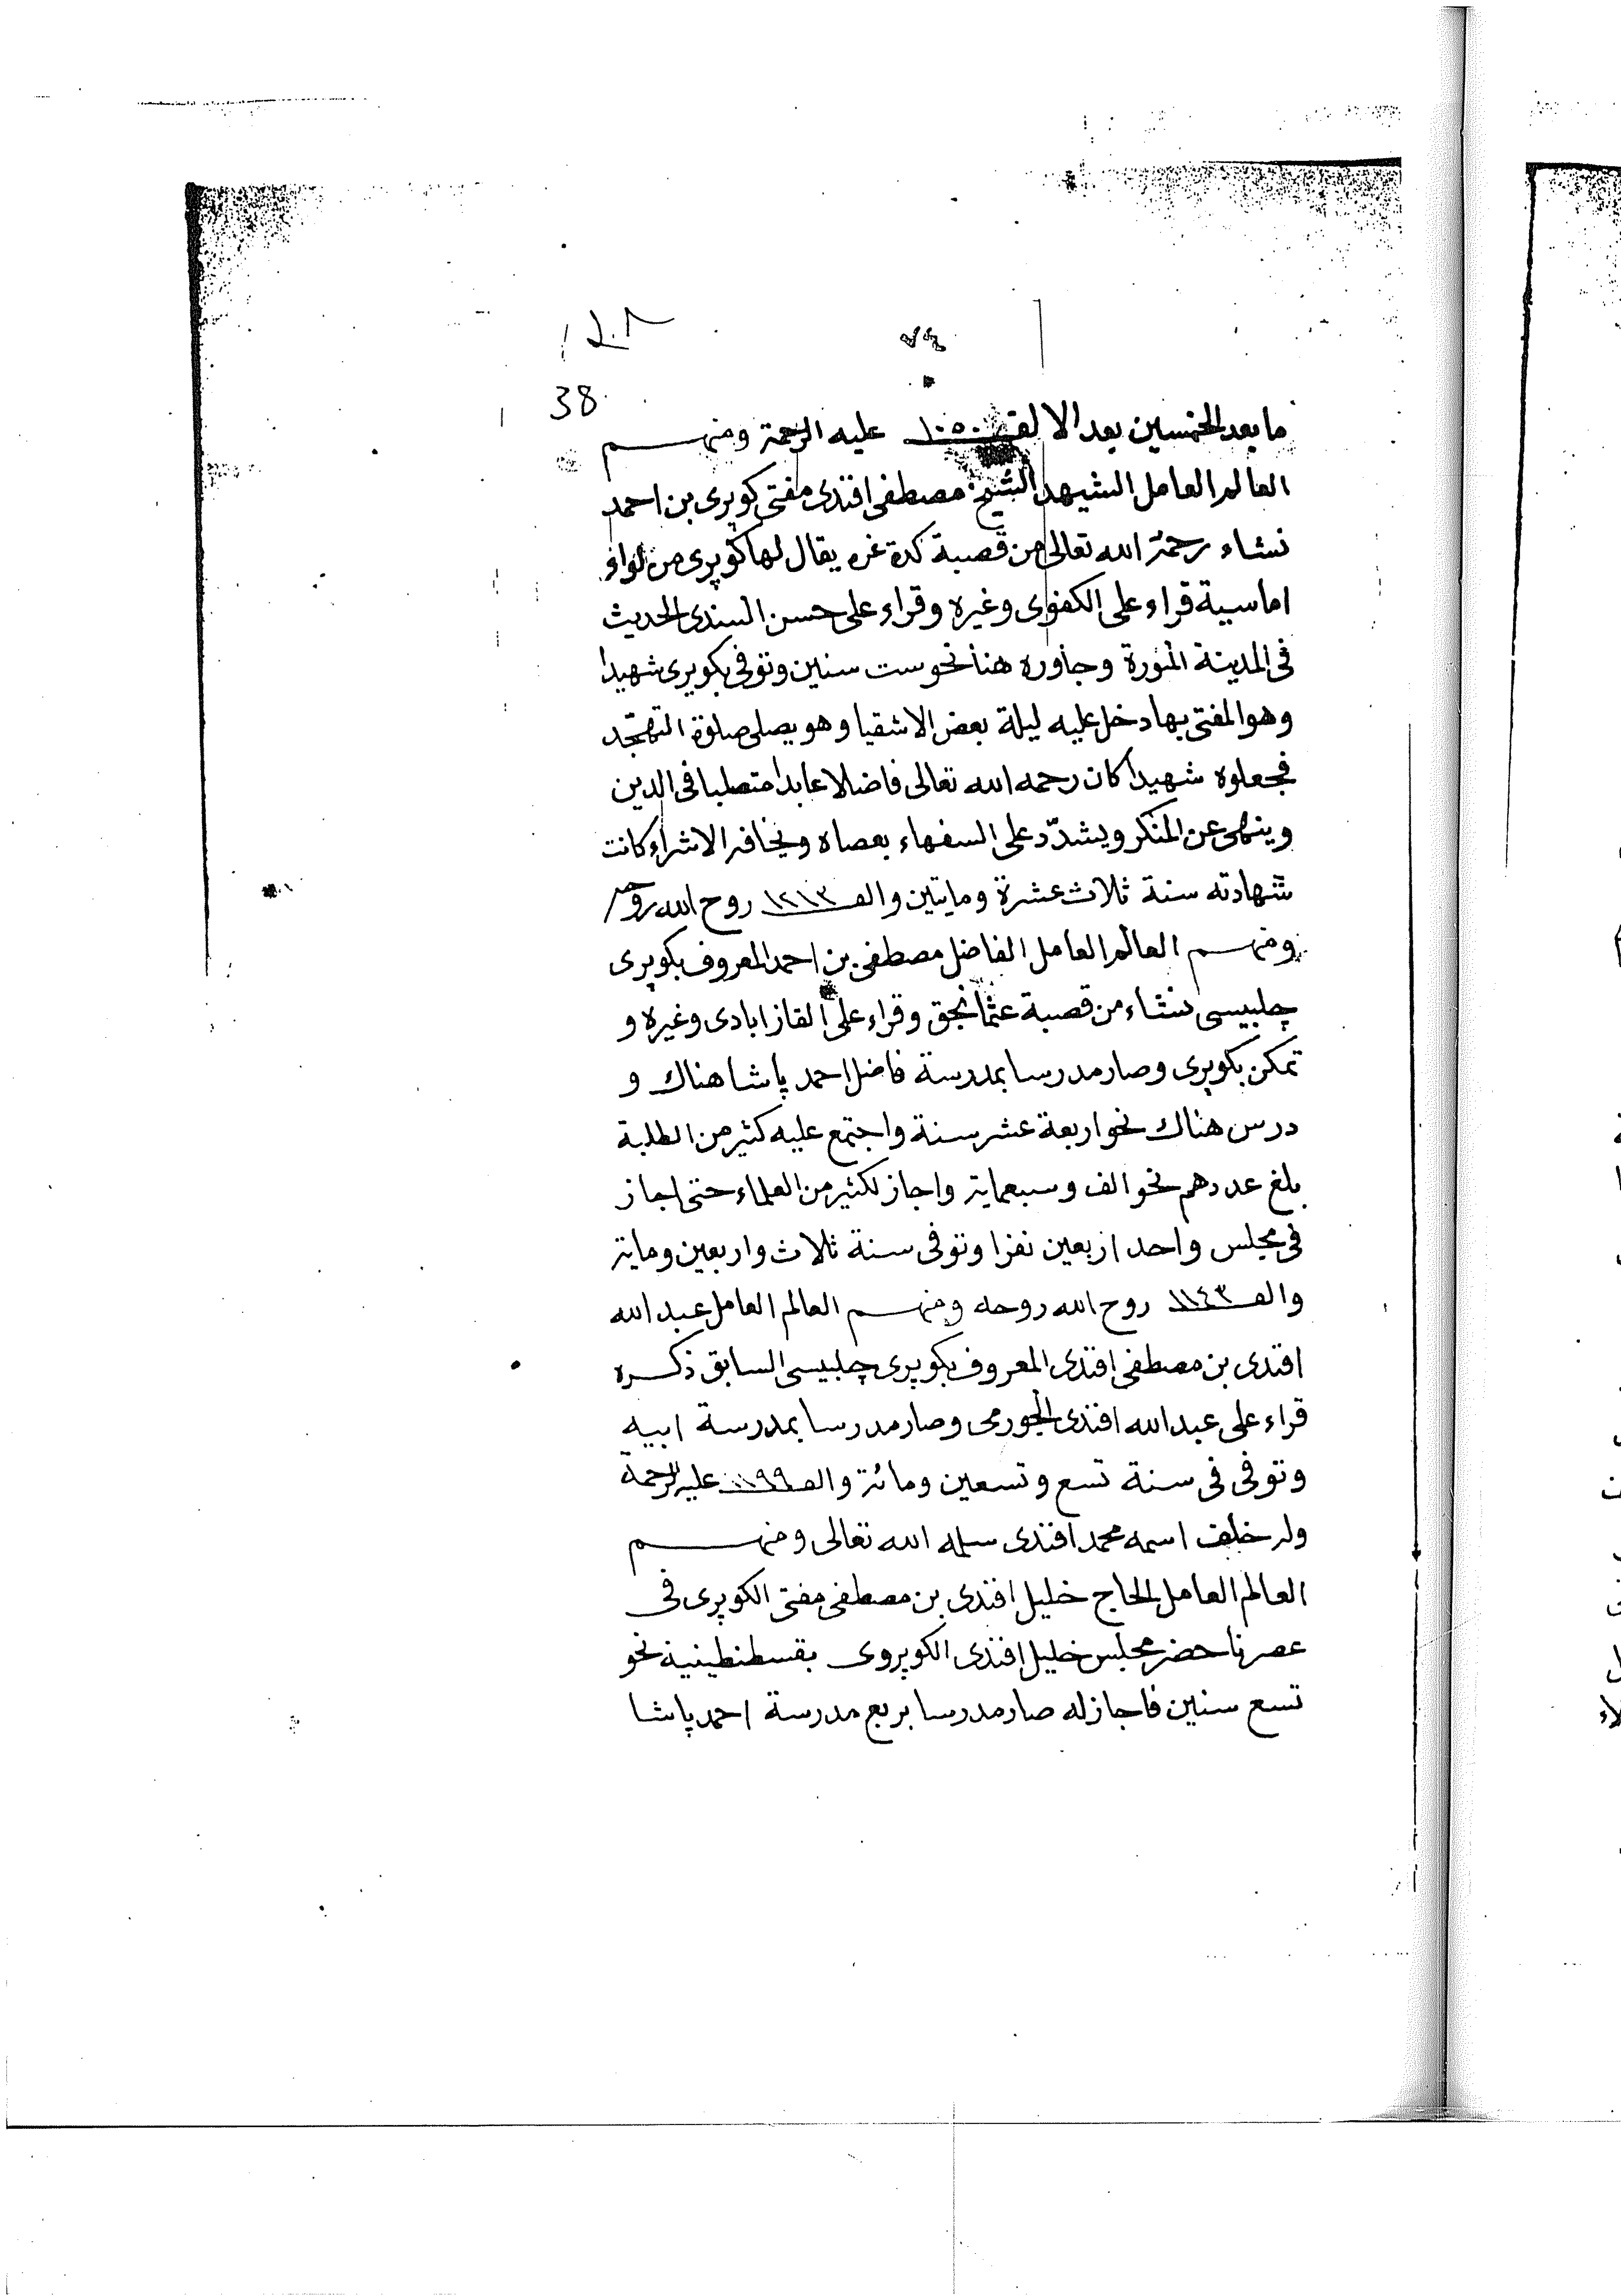 38
ما بعد الخمسين بعد الالف ١٠٥٠ عليه الرحمة ومنهم
العالم العامل الشهيد الشيخ مصطفى افندى مفتى كوپرى بن احمد
نشاء رحمه الله تعالى من قصبة كدة غره يقال لها كوپرى من لواء
اماسية قراء على الكفوى وغيره وقراء على حسن السندى الحديث
فى المدينة المنورة وجاوره هنا نحو ست سنين وتوفى بكوپرى شهيدا
وهو المفتى بها دخل عليه ليلة بعض الاشقيا وهو يصلى صلوة التهجّد
فجعلوه شهيدا كان رحمه الله تعالى فاضلا عابدا متصلبا فى الدين
وينهى عن المنكر ويشدّد على السفهاء بعصاه ويخافه الاشراء كانت
شهادته سنة ثلاث عشرة ومايتين والف ١٢١٣ روح الله روحه
ومنهم العالم العامل الفاضل مصطفى بن احمد المعروف بكوپرى
چلبيسى نشاء من قصبة عثمانجق وقراء على القازابادى وغيره و
تمكن بكوپرى وصار مدرسا بمدرسة فاضل احمد پاشا هناك و
درس هناك نحو اربعة عشر سنة واجتمع عليه كثير من الطلبة
بلغ عددهم نحو الف وسبعماية واجاز لكثير من العلماء حتى اجاز
فى مجلس واحد اربعين نفرا وتوفى سنة ثلاث واربعين وماية
والف ١١٤٣ روح الله روحه ومنهم العالم العامل عبد الله
افندى بن مصطفى افندى المعروف بكوپرى چلبيسى السابق ذكره
قراء على عبد الله افندى الجورمى وصار مدرسا بمدرسة ابيه
وتوفى فى سنة تسع وتسعين ومائة والف ١١٩٩ عليه الرحمة
وله خلف اسمه محمد افندى سلمه الله تعالى ومنهم
العالم العامل الحاج خليل افندى بن مصطفى مفتى الكوپرى فى
عصرنا حضر مجلس خليل افندى الكوپروى بقسطنطينية نحو
تسع سنين فاجاز له صار مدرسا بربع مدرسة احمد پاشا